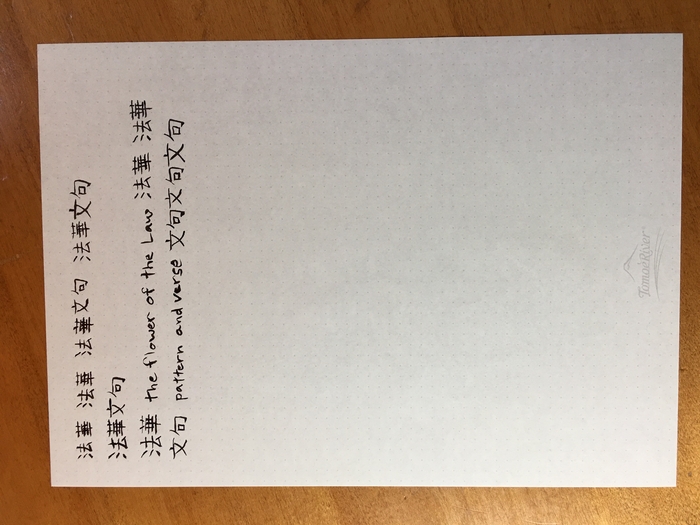 法華 法華 法華文句 法華文句
法華文句
法華 the flower of the Law 法華 法華
文句 pattern and verse 文句文句文句
Tomoe River